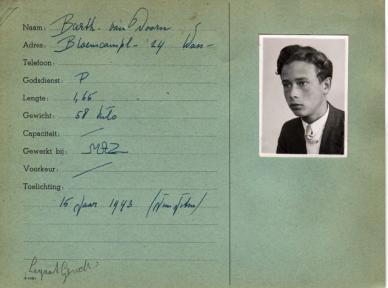 Naam: Barth. van Doorn
Adres: Bloemcampl- 24 Was-
Telefoon:
Godsdienst: P
Lengte: 1,66
Gewicht: 58 kilo
Capaciteit: /
Gewerkt bij:
Voorkeur: /
Toelichting:
15 Jaar 1943